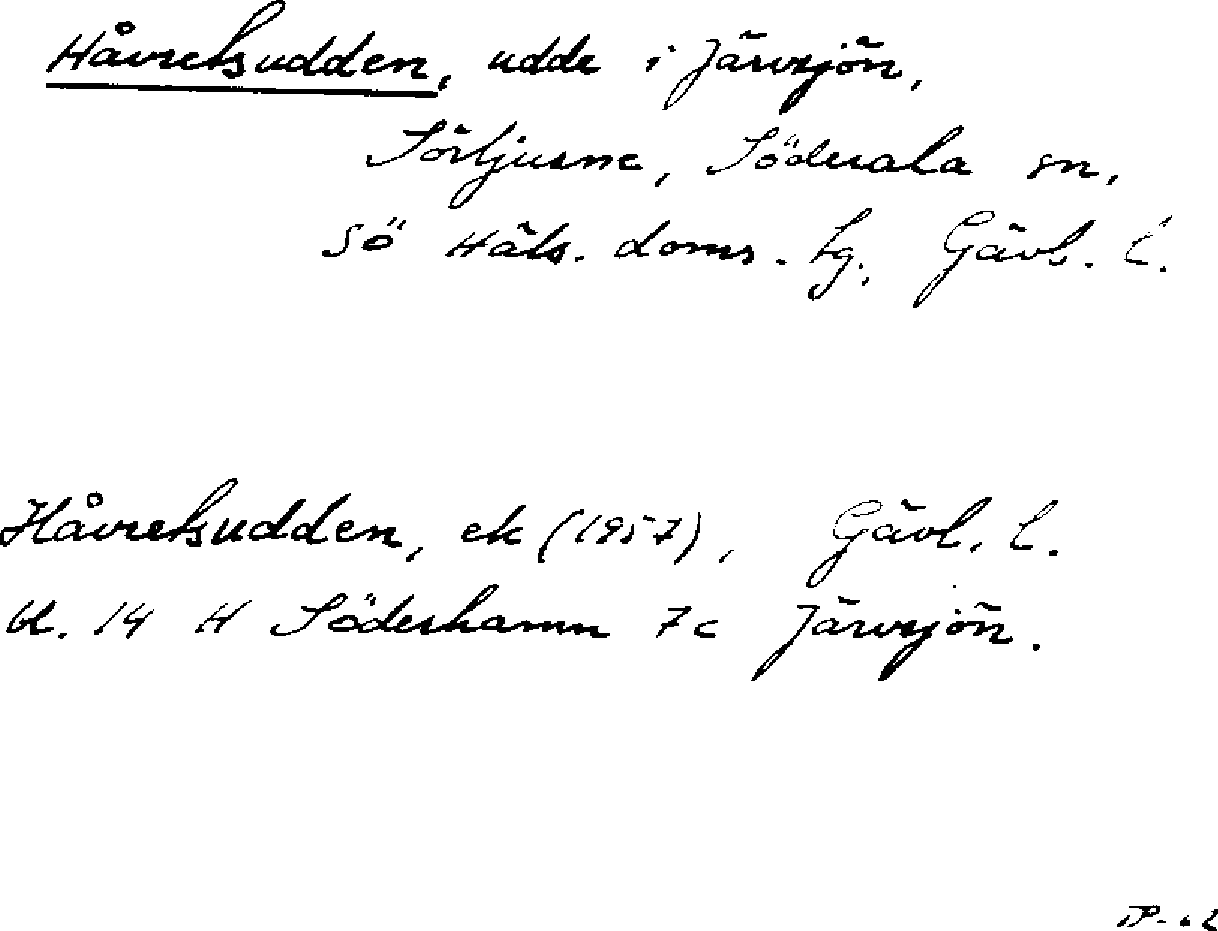 Håvrehsudden, udde i Järvsjön,
Sörljusne, Söderala sn,
Sö Häls. doms. hg, Gävl. l.
Håvrehsudden, ek (1957), Gävl. l.
bl. 14 H Söderhamn 7c Järvsjön.